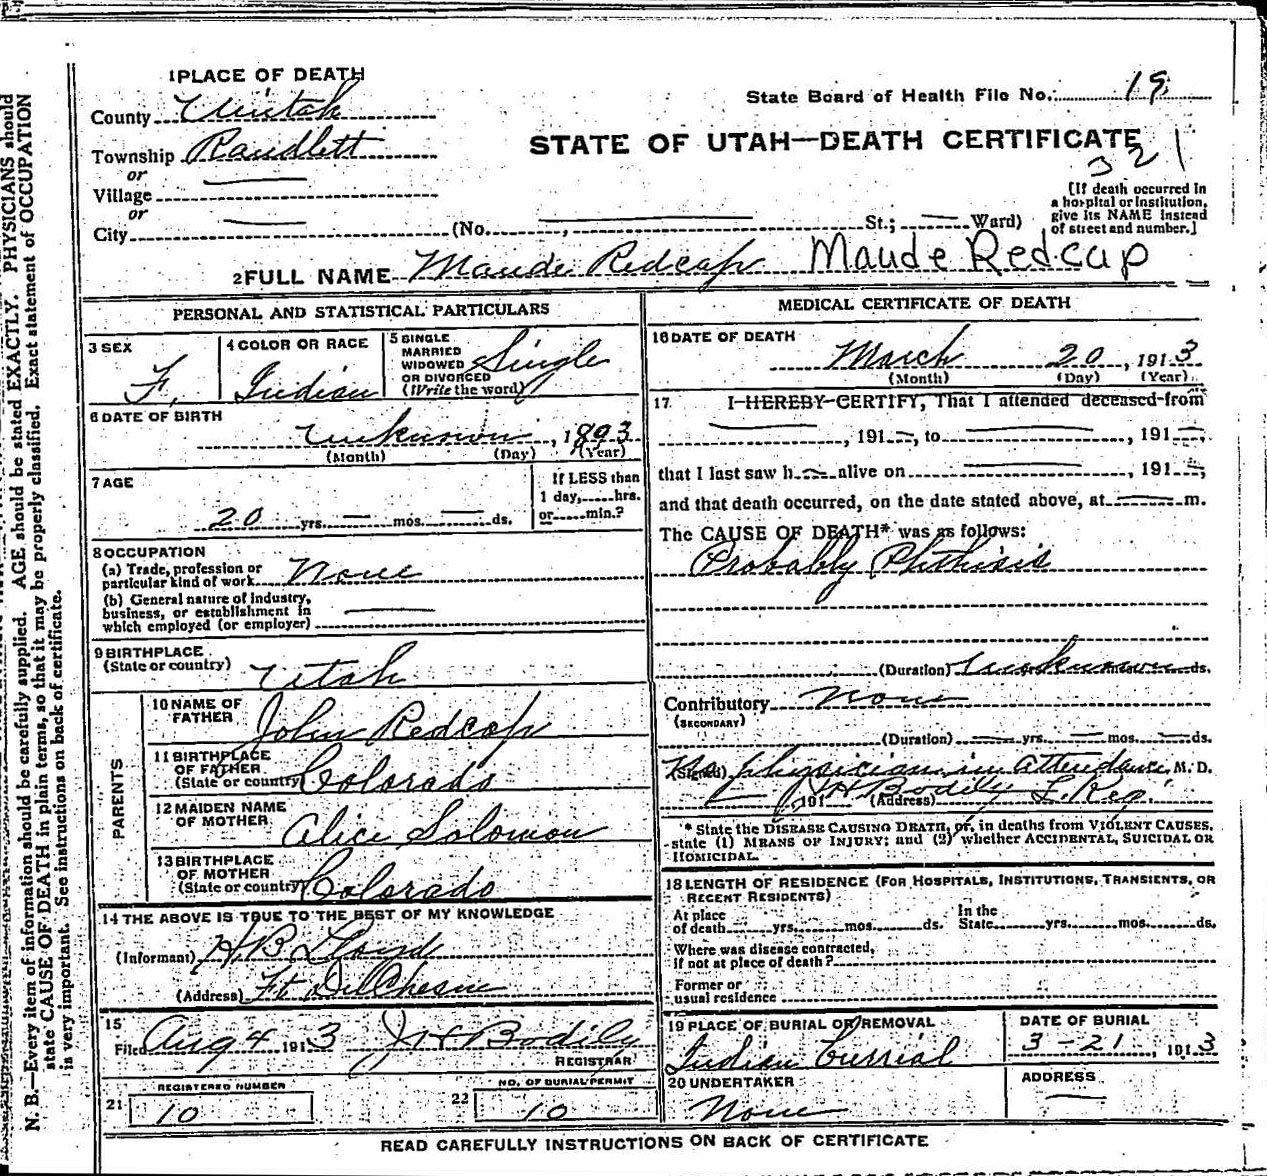 1 PLACE OF DEATH
County Uintah
State Board of Health File No. 19
Township Randlett
STATE OF UTAH—DEATH CERTIFICATE
321
or
Village
or
City (No. , St.; Ward)
[If death occurred in
a hospital or institution,
give its NAME instead
of street and number.]
2 FULL NAME Maude Redcap Maude Redcap
PERSONAL AND STATISTICAL PARTICULARS
3 SEX F.
4 COLOR OR RACE Indian
5 SINGLE
MARRIED
WIDOWED
OR DIVORCED
(Write the word) Single
6 DATE OF BIRTH
unknown, 1893
(Month) (Day) (Year)
7 AGE
20 yrs. — mos. — ds.
If LESS than
1 day, hrs.
or min.?
8 OCCUPATION
(a) Trade, profession or
particular kind of work None
(b) General nature of industry,
business, or establishment in
which employed (or employer)
9 BIRTHPLACE
(State or country) Utah
PARENTS
10 NAME OF
FATHER John Redcap
11 BIRTHPLACE
OF FATHER
(State or country) Colorado
12 MAIDEN NAME
OF MOTHER Alice Solomon
13 BIRTHPLACE
OF MOTHER
(State or country) Colorado
14 THE ABOVE IS TRUE TO THE BEST OF MY KNOWLEDGE
(Informant) H. B. Lloyd
(Address) Ft. DuChesne
15
Filed Aug 4 1913 J H Bodily
REGISTRAR
REGISTERED NUMBER
21 10
NO. OF BURIAL PERMIT
22 10
MEDICAL CERTIFICATE OF DEATH
16 DATE OF DEATH
March 20, 1913
(Month) (Day) (Year)
17. I HEREBY CERTIFY, That I attended deceased from
, 191—, to , 191—,
that I last saw h— alive on , 191—,
and that death occurred, on the date stated above, at m.
The CAUSE OF DEATH* was as follows:
Probably Phthisis
(Duration) unknown ds.
Contributory None
(SECONDARY)
(Duration) yrs. mos. ds.
(Signed) No physician in attendance, M. D.
, 191 (Address) J H Bodily L. Reg.
* State the DISEASE CAUSING DEATH, or, in deaths from VIOLENT CAUSES,
state (1) MEANS OF INJURY; and (2) whether ACCIDENTAL, SUICIDAL OR
HOMICIDAL.
18 LENGTH OF RESIDENCE (FOR HOSPITALS, INSTITUTIONS, TRANSIENTS, OR
RECENT RESIDENTS)
At place
of death yrs. mos. ds.
In the
State yrs. mos. ds.
Where was disease contracted,
if not at place of death?
Former or
usual residence
19 PLACE OF BURIAL OR REMOVAL
Indian burrial
DATE OF BURIAL
3-21, 1913
20 UNDERTAKER
None
ADDRESS
READ CAREFULLY INSTRUCTIONS ON BACK OF CERTIFICATE
N. B.—Every item of information should be carefully supplied. AGE should be stated EXACTLY. PHYSICIANS should
state CAUSE OF DEATH in plain terms, so that it may be properly classified. Exact statement of OCCUPATION
is very important. See instructions on back of certificate.